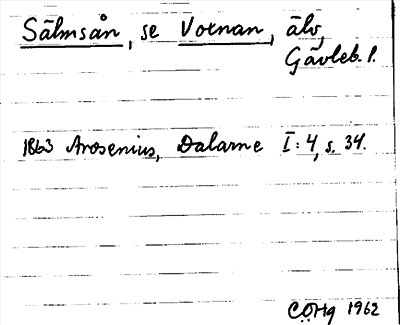 Sälmsån, se Voxnan, älv,
Gävleb. l.
1863 Arosenius, Dalarne I:4, s. 34.
CÖHg 1962